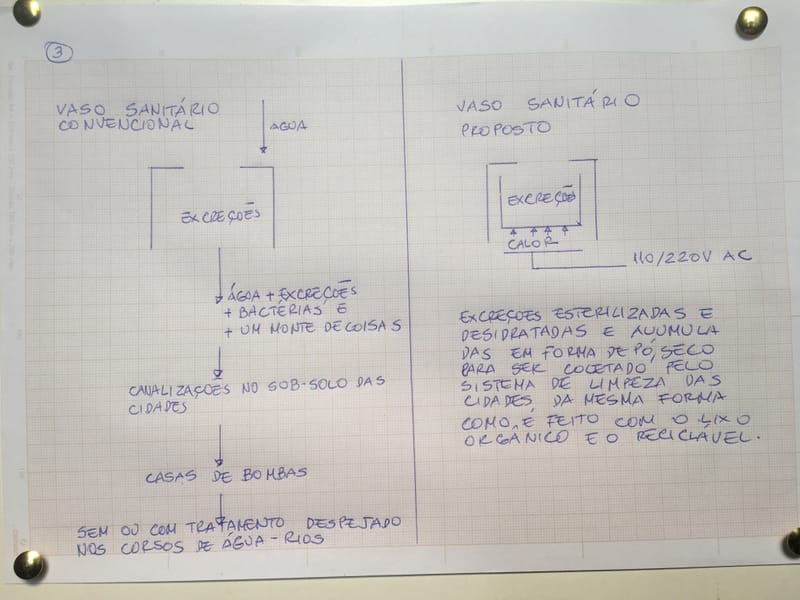 3
VASO SANITÁRIO
CONVENCIONAL
ÁGUA
EXCREÇÕES
ÁGUA + EXCREÇÕES
+ BACTÉRIAS E
+ UM MONTE DE COISAS
CANALIZAÇÕES NO SUB-SOLO DAS
CIDADES
CASAS DE BOMBAS
SEM OU COM TRATAMENTO DESPEJADO
NOS CORSOS DE ÁGUA - RIOS
VASO SANITÁRIO
PROPOSTO
EXCREÇÕES
CALOR
110/220V AC
EXCREÇOES ESTERILIZADAS E
DESIDRATADAS E ACUMULA
DAS EM FORMA DE PÓ, SECO
PARA SER COLETADO PELO
SISTEMA DE LIMPEZA DAS
CIDADES DA MESMA FORMA
COMO É FEITO COM O LIXO
ORGÂNICO E O RECICLÁVEL.